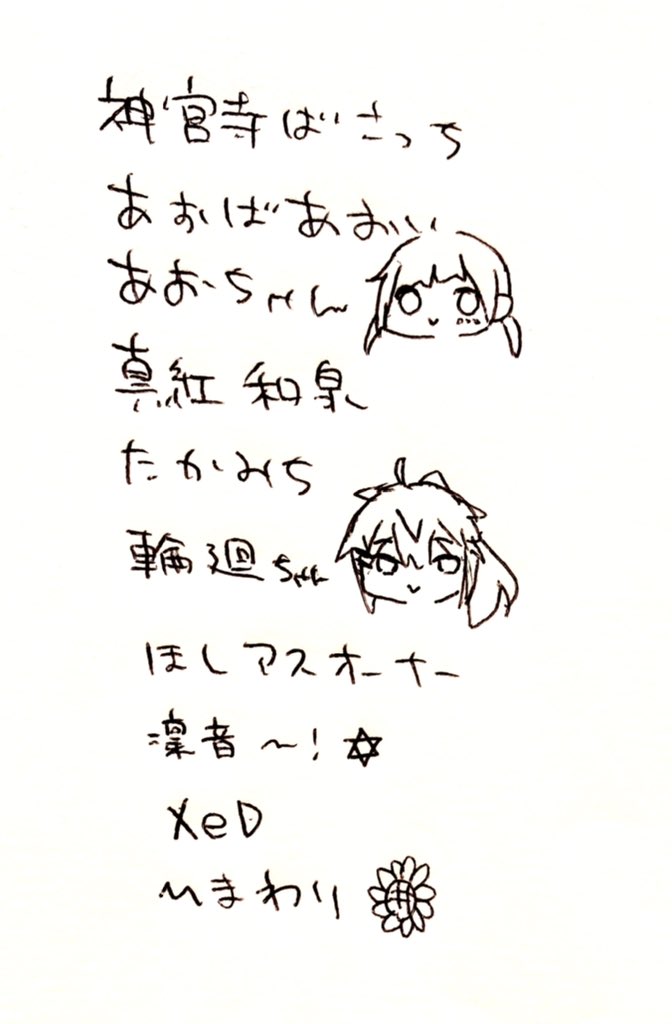 神宮寺ばさっち
あおばあおい
あおちゃん
真紅 和泉
たかみち
輪廻ちゃん
ほしアスオーナー
凜音〜!
XeD
ひまわり